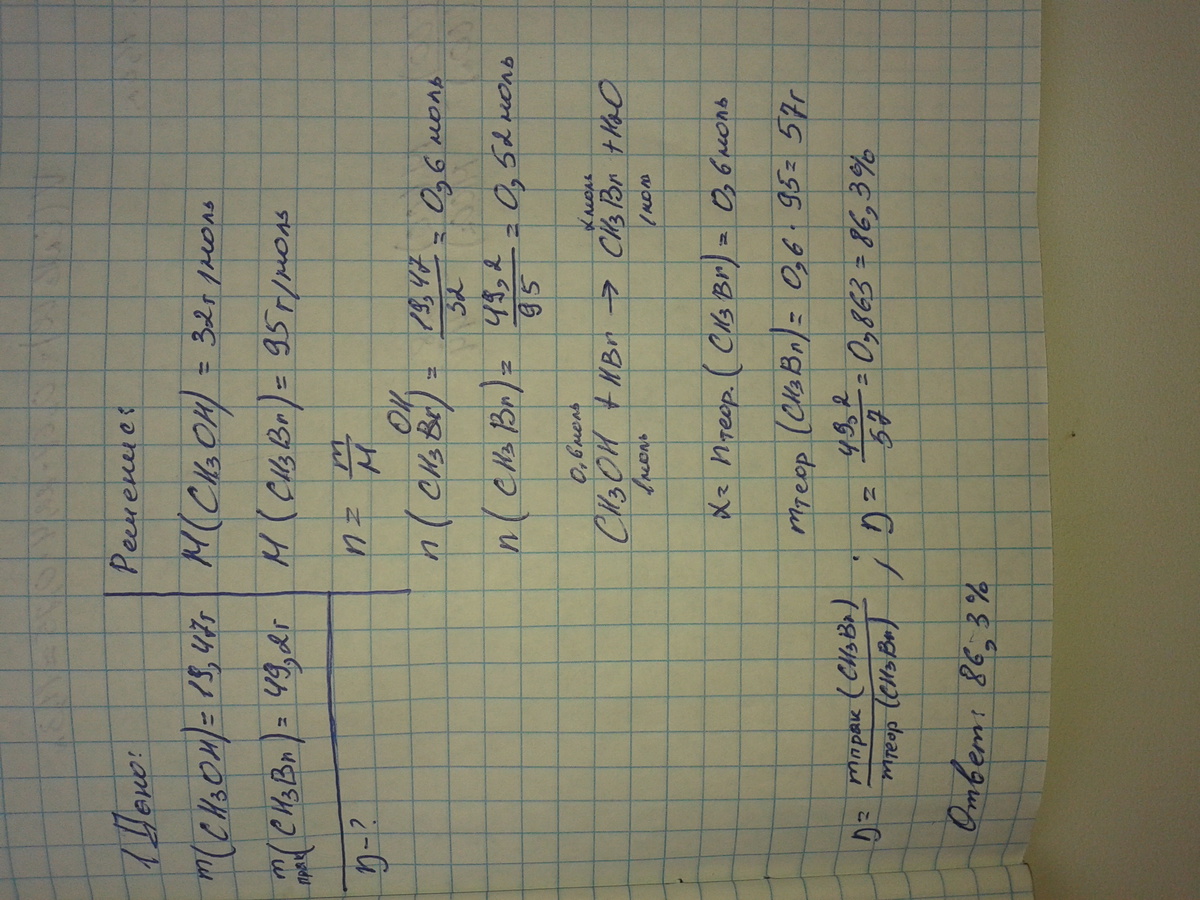 1 Дано:
m(CH3OH) = 19,47г
mпрак(CH3Br) = 49,2г
η - ?
Решение:
M(CH3OH) = 32г/моль
M(CH3Br) = 95г/моль
n = m/M
n(CH3OH) = 19,47/32 = 0,6 моль
n(CH3Br) = 49,2/95 = 0,52 моль
0,6моль xмоль
CH3OH + HBr → CH3Br + H2O
1моль 1моль
x = nтеор.(CH3Br) = 0,6моль
mтеор(CH3Br) = 0,6 · 95 = 57г
η = mпрак(CH3Br)/mтеор(CH3Br) ; η = 49,2/57 = 0,863 = 86,3%
Ответ: 86,3%